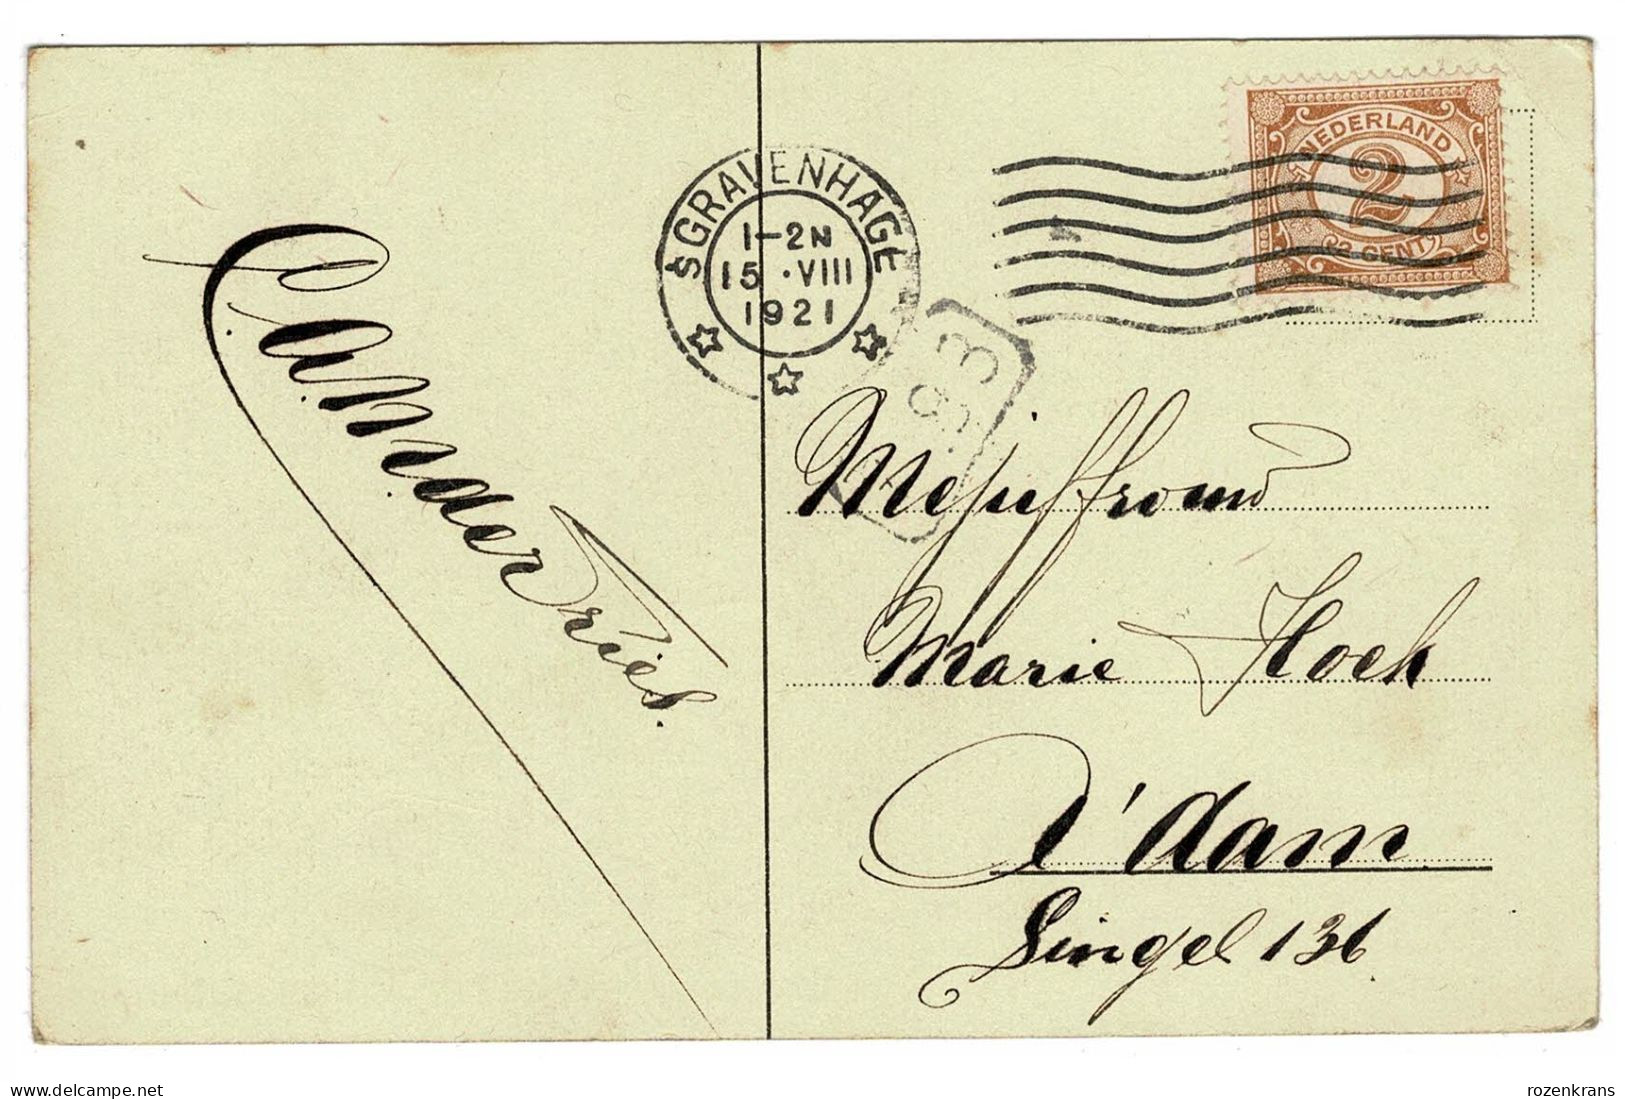 'SGRAVENHAGE
1-2N
15 ·VIII
1921
NEDERLAND
2
2 CENT
C.A.M. der Vries.
Mejuffrouw
Marie Hoek
A'dam
Singel 136
delcampe.net
rozenkrans